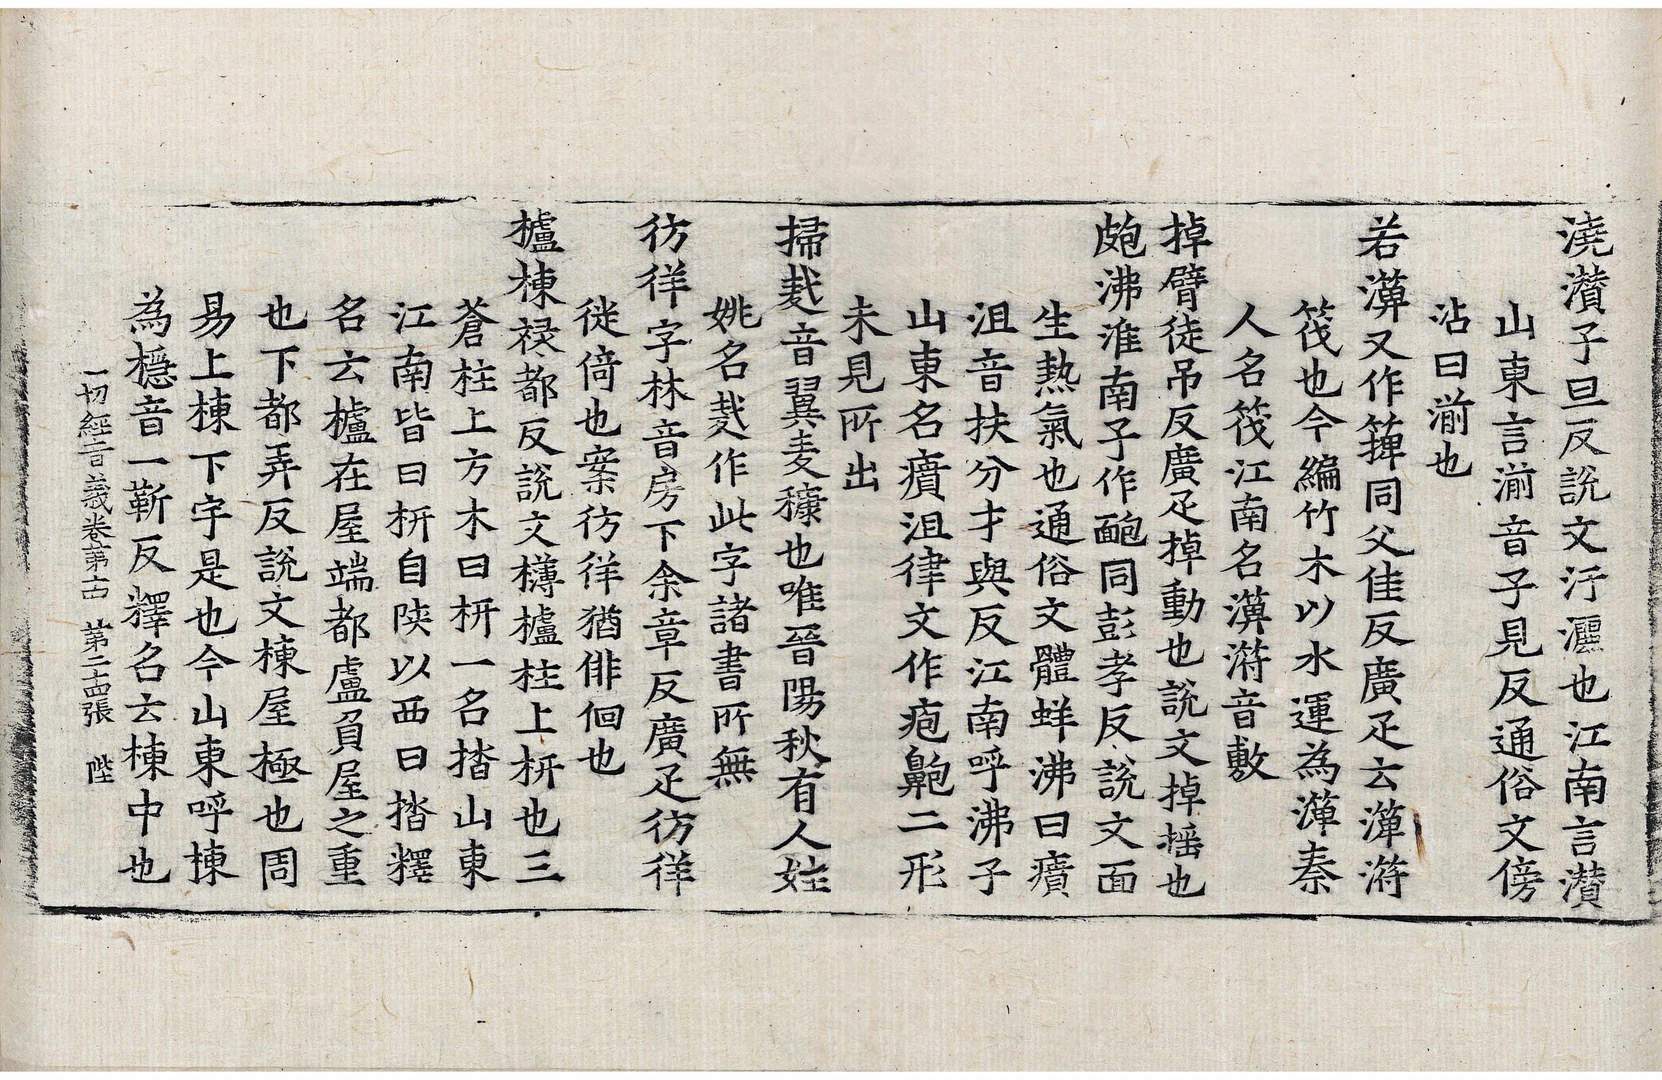 澆灒子旦反說文汙灑也江南言灒
山東言湔音子見反通俗文傍
沾曰湔也
若䉬又作箄同父佳反廣疋云䉬㳍
筏也今編竹木以水運為䉬秦
人名筏江南名䉬㳍音敷
掉臂徒吊反廣疋掉動也說文掉搖也
皰沸淮南子作靤同彭孝反說文面
生熱氣也通俗文體蛘沸曰癀
沮音扶分才與反江南呼沸子
山東名癀沮律文作疱鼥二形
未見所出
掃麩音翼麦糠也唯晉陽秋有人姓
姚名麩作此字諸書所無
彷徉字林音房下余章反廣疋彷徉
徙倚也案彷徉猶俳佪也
櫨棟禄都反說文欂櫨柱上枅也三
蒼柱上方木曰枅一名㭼山東
江南皆曰枅自陝以西曰㭼釋
名云櫨在屋端都盧負屋之重
也下都弄反說文棟屋極也周
易上棟下字是也今山東呼棟
為檼音一靳反釋名云棟中也
一切經音義卷第古　第二十四張　陛